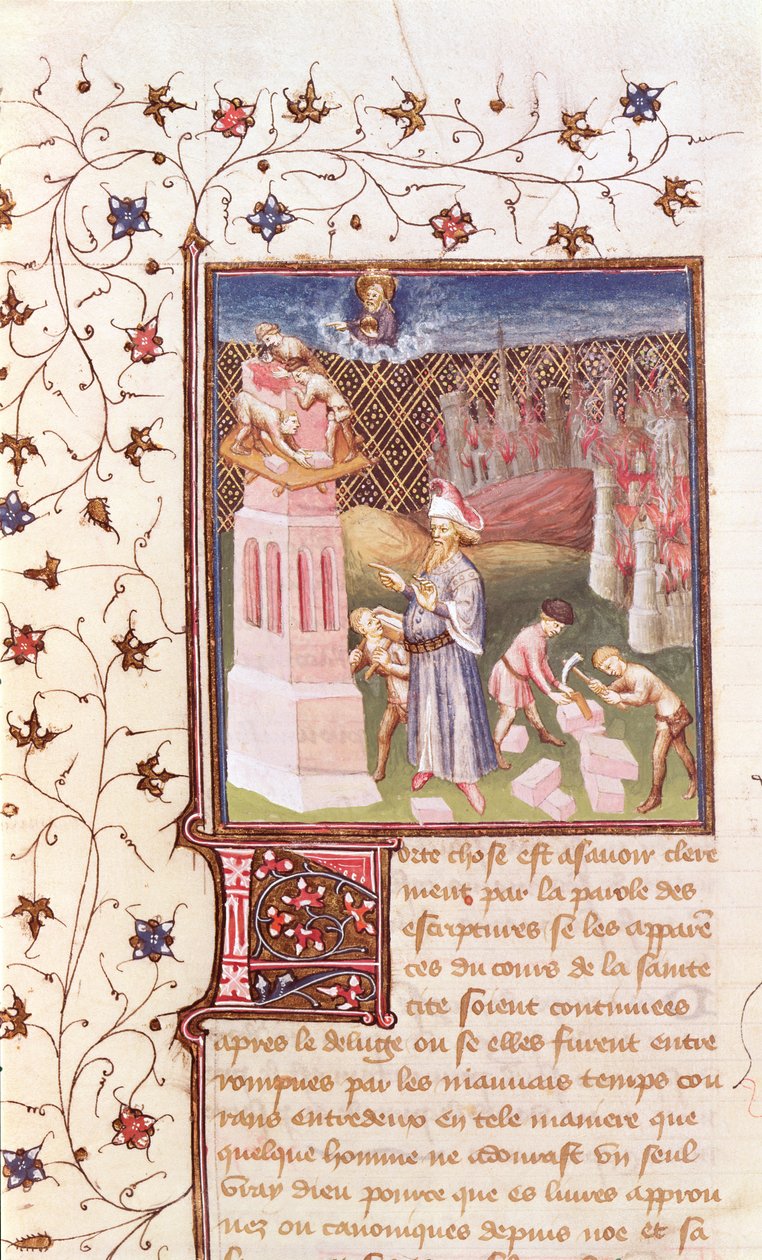 Forte chose est asavoir clere
ment par la parole des
escriptures se les apparẽ
ces du cours de la sainte
cite soient continuees
apres le deluge ou se elles furent entre
rompues par les mauuais temps cou
rans entredeux en tele maniere que
quelque homme ne adourast vn seul
vray dieu pource que es liures approu
uez ou canoniques depuis noe et sa